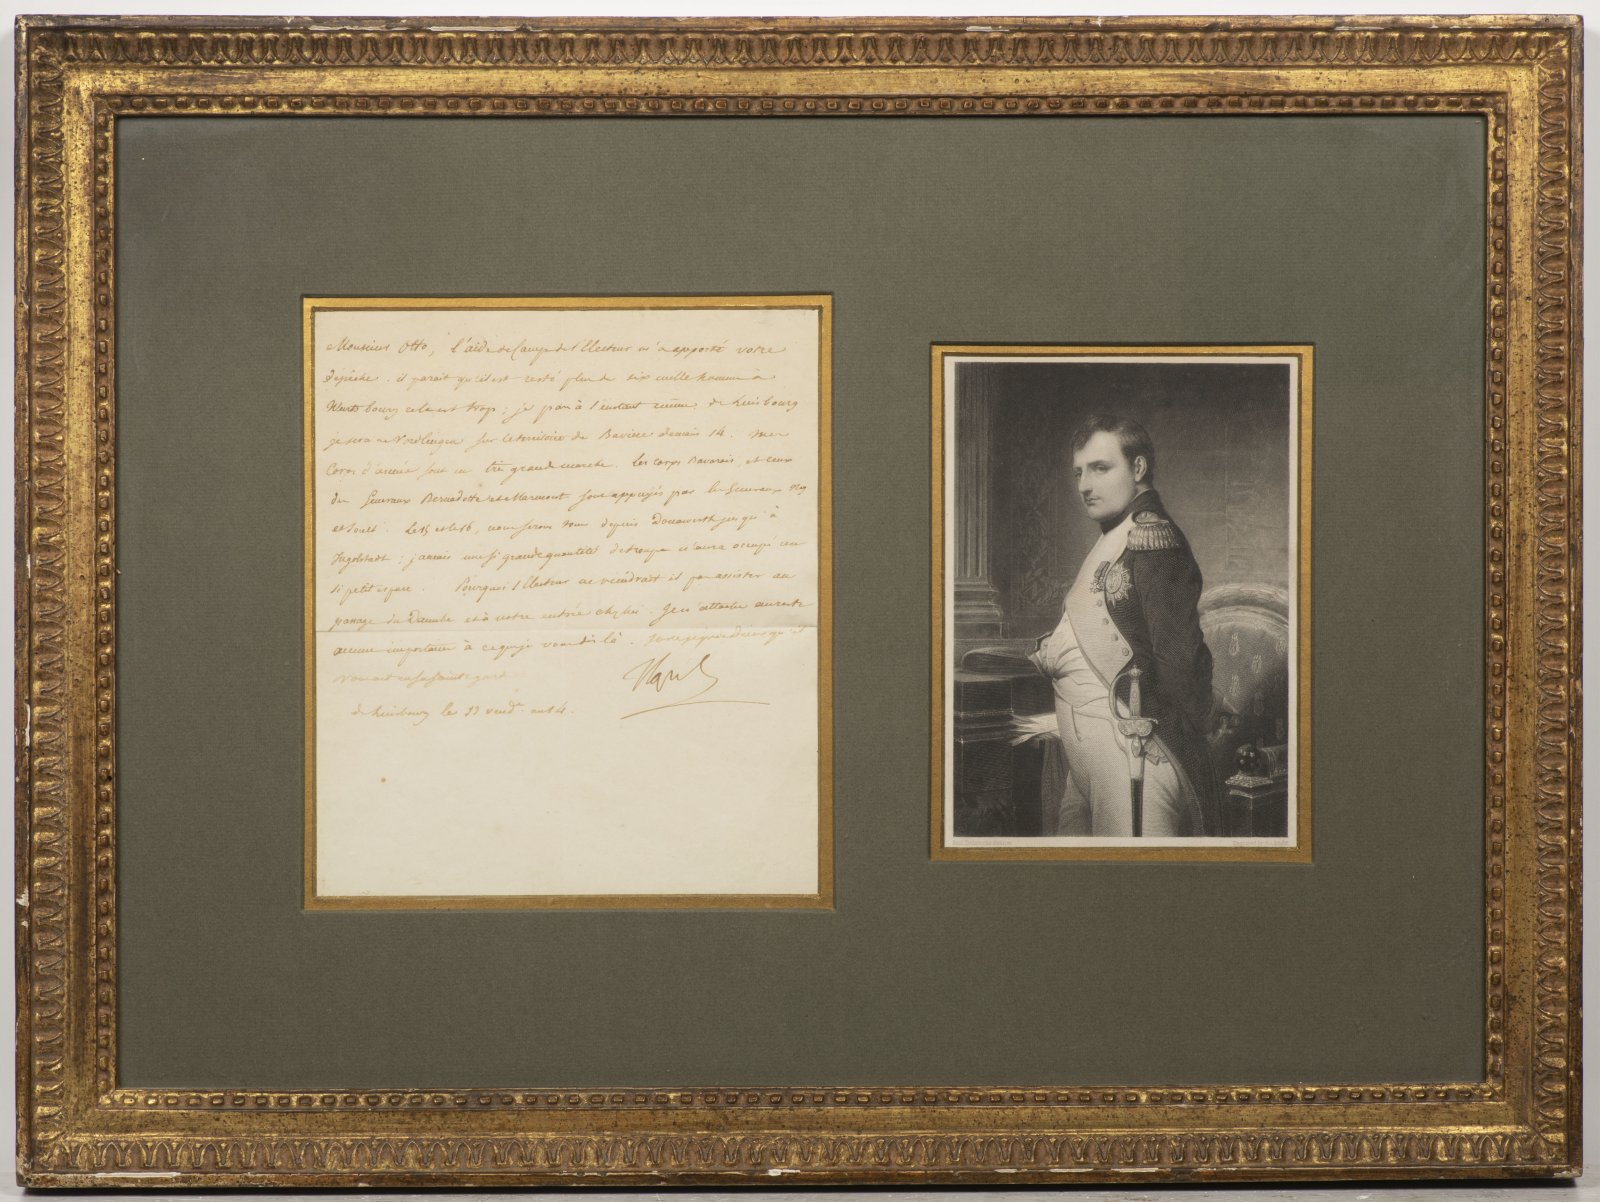 Monsieur Otto, l'aide de Camp de l'Electeur m'a apporté votre
dépêche. il parait qu'il est resté plus de six mille homme à
Wurtzbourg cela est trop; je pars à l'instant même de Luisbourg
je serai à Nordlingen sur le territoire de Baviere demain 14. mes
Corps d'armée sont en très grande marche. Les corps Bavarois, et ceux
des Generaux Bernadotte et de Marmont sont appuyés par les Generaux Ney
et Soult. Le 15 et le 16, nous serons tous depuis Donawerth jusqu'à
Ingolstadt: jamais une si grande quantité de troupe n'aura occupé un
si petit espace. Pourquoi l'Electeur ne viendrait il pas assister au
passage du Danube et à notre entrée chez lui. Je n'attache au reste
aucune importance à ce que je vous dis là. Sur ce je prie Dieu qu'il
vous ait en sa sainte garde
Napol
de Luisbourg le 13 vend.re an 14.